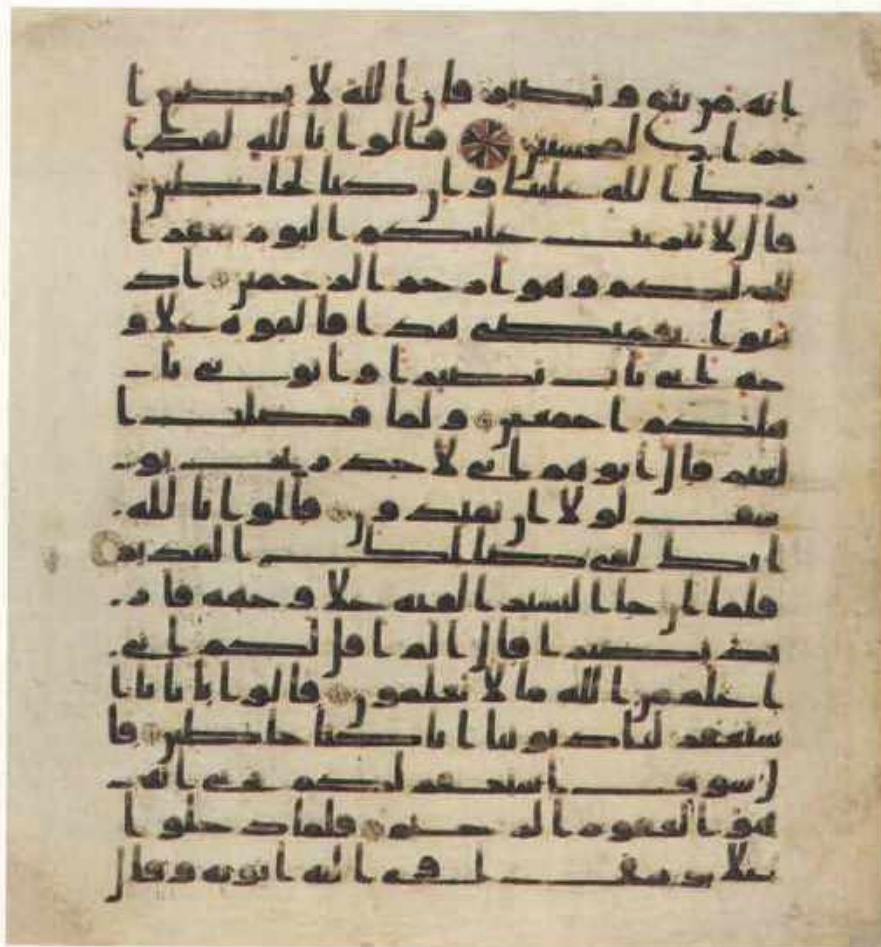 انه من يتق و يصبر فان الله لا يضيع ا
جر المحسنين قالوا تالله لقد ا
ثرك الله علينا و ان كنا لخاطين
قال لا تثريب عليكم اليوم يغفر ا
لله لكم و هو ارحم الرحمين اذ
هبوا بقميصي هذا فالقوه علا و
جه ابي يات بصيرا و اتوني با
هلكم اجمعين و لما فصلت ا
لعير قال ابوهم اني لاجد ريح يو
سف لولا ان تفندون قالوا تالله
انك لفي ضللك القديم
فلما ان جا البشير القيه علا وجهه فار
تد بصيرا قال الم اقل لكم اني
اعلم من الله ما لا تعلمون قالوا يابانا ا
ستغفر لنا ذنوبنا انا كنا خاطين قا
ل سوف استغفر لكم ربي انه
هو الغفور الرحيم فلما دخلوا
علا يوسف اوي اليه ابويه وقال